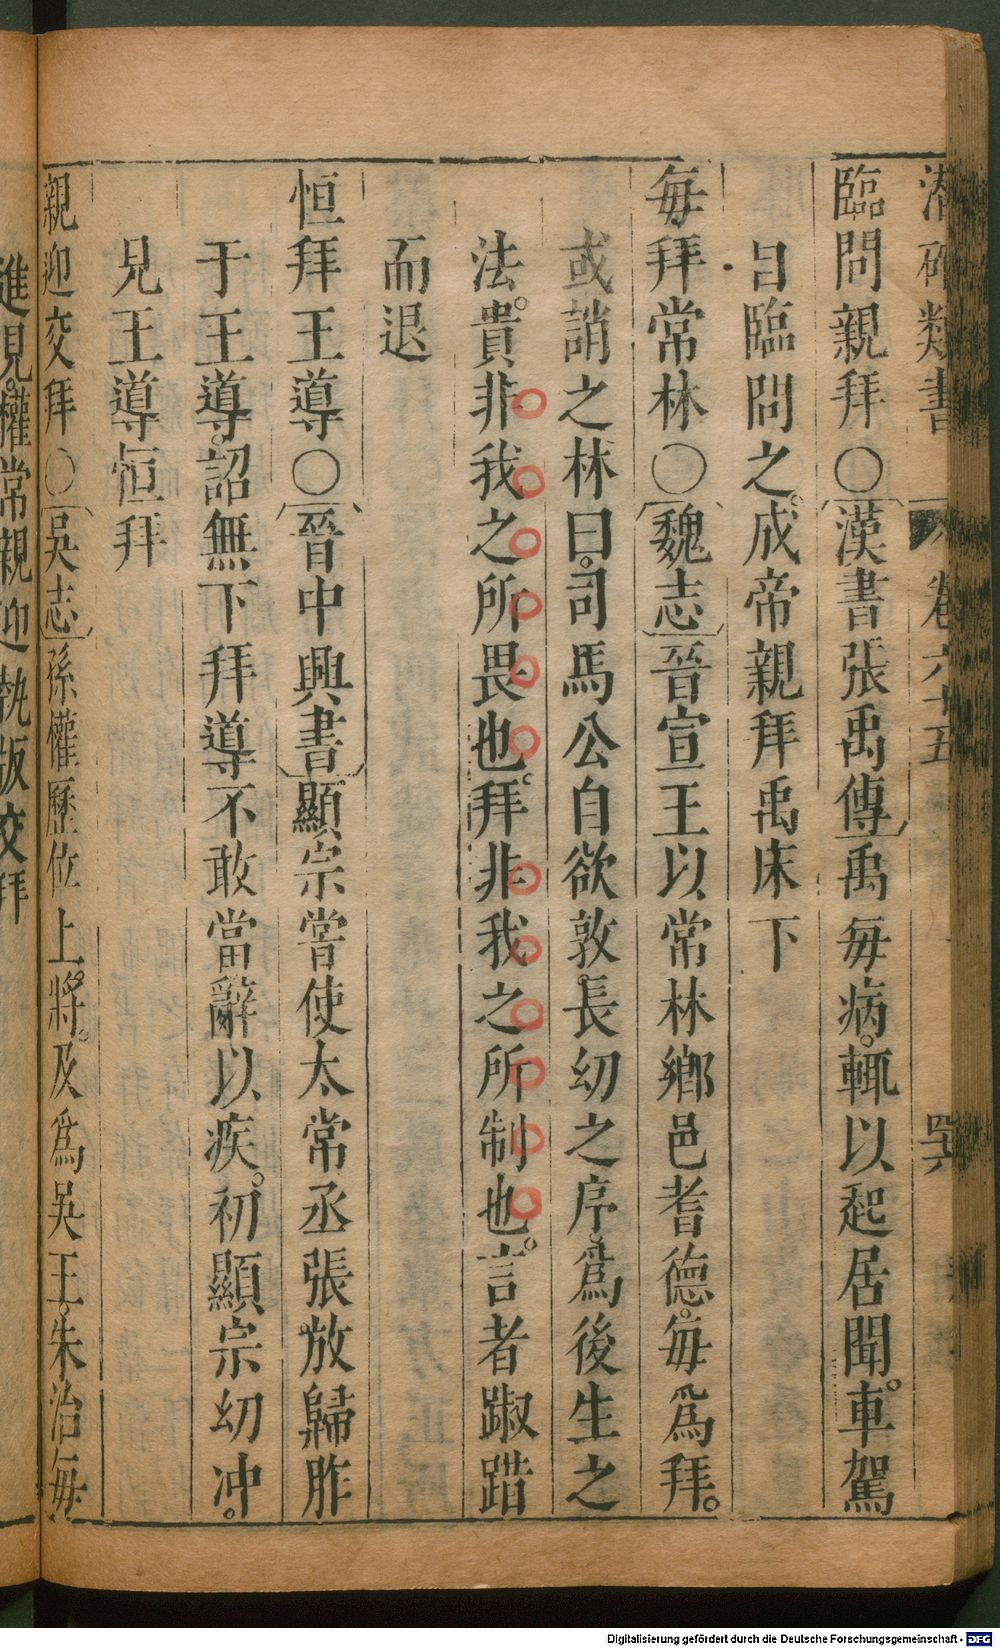 潛確類書 卷六十五 四六
臨問親拜○漢書張禹傳禹每病。輒以起居聞。車駕
自臨問之。成帝親拜禹床下
每拜常林○魏志晉宣王以常林鄉邑耆德。每為拜。
或誚之林曰。司馬公自欲敦長幼之序。為後生之
法。貴非我之所畏也。拜非我之所制也。言者踧踖
而退
恒拜王導○晉中興書顯宗嘗使太常丞張放歸胙
于王導。詔無下拜導不敢當辭以疾。初顯宗幼冲。
見王導恒拜
親迎交拜○吳志孫權歷位上將。及為吳王。朱治每
進見。權常親迎執版交拜
Digitalisierung gefördert durch die Deutsche Forschungsgemeinschaft - DFG